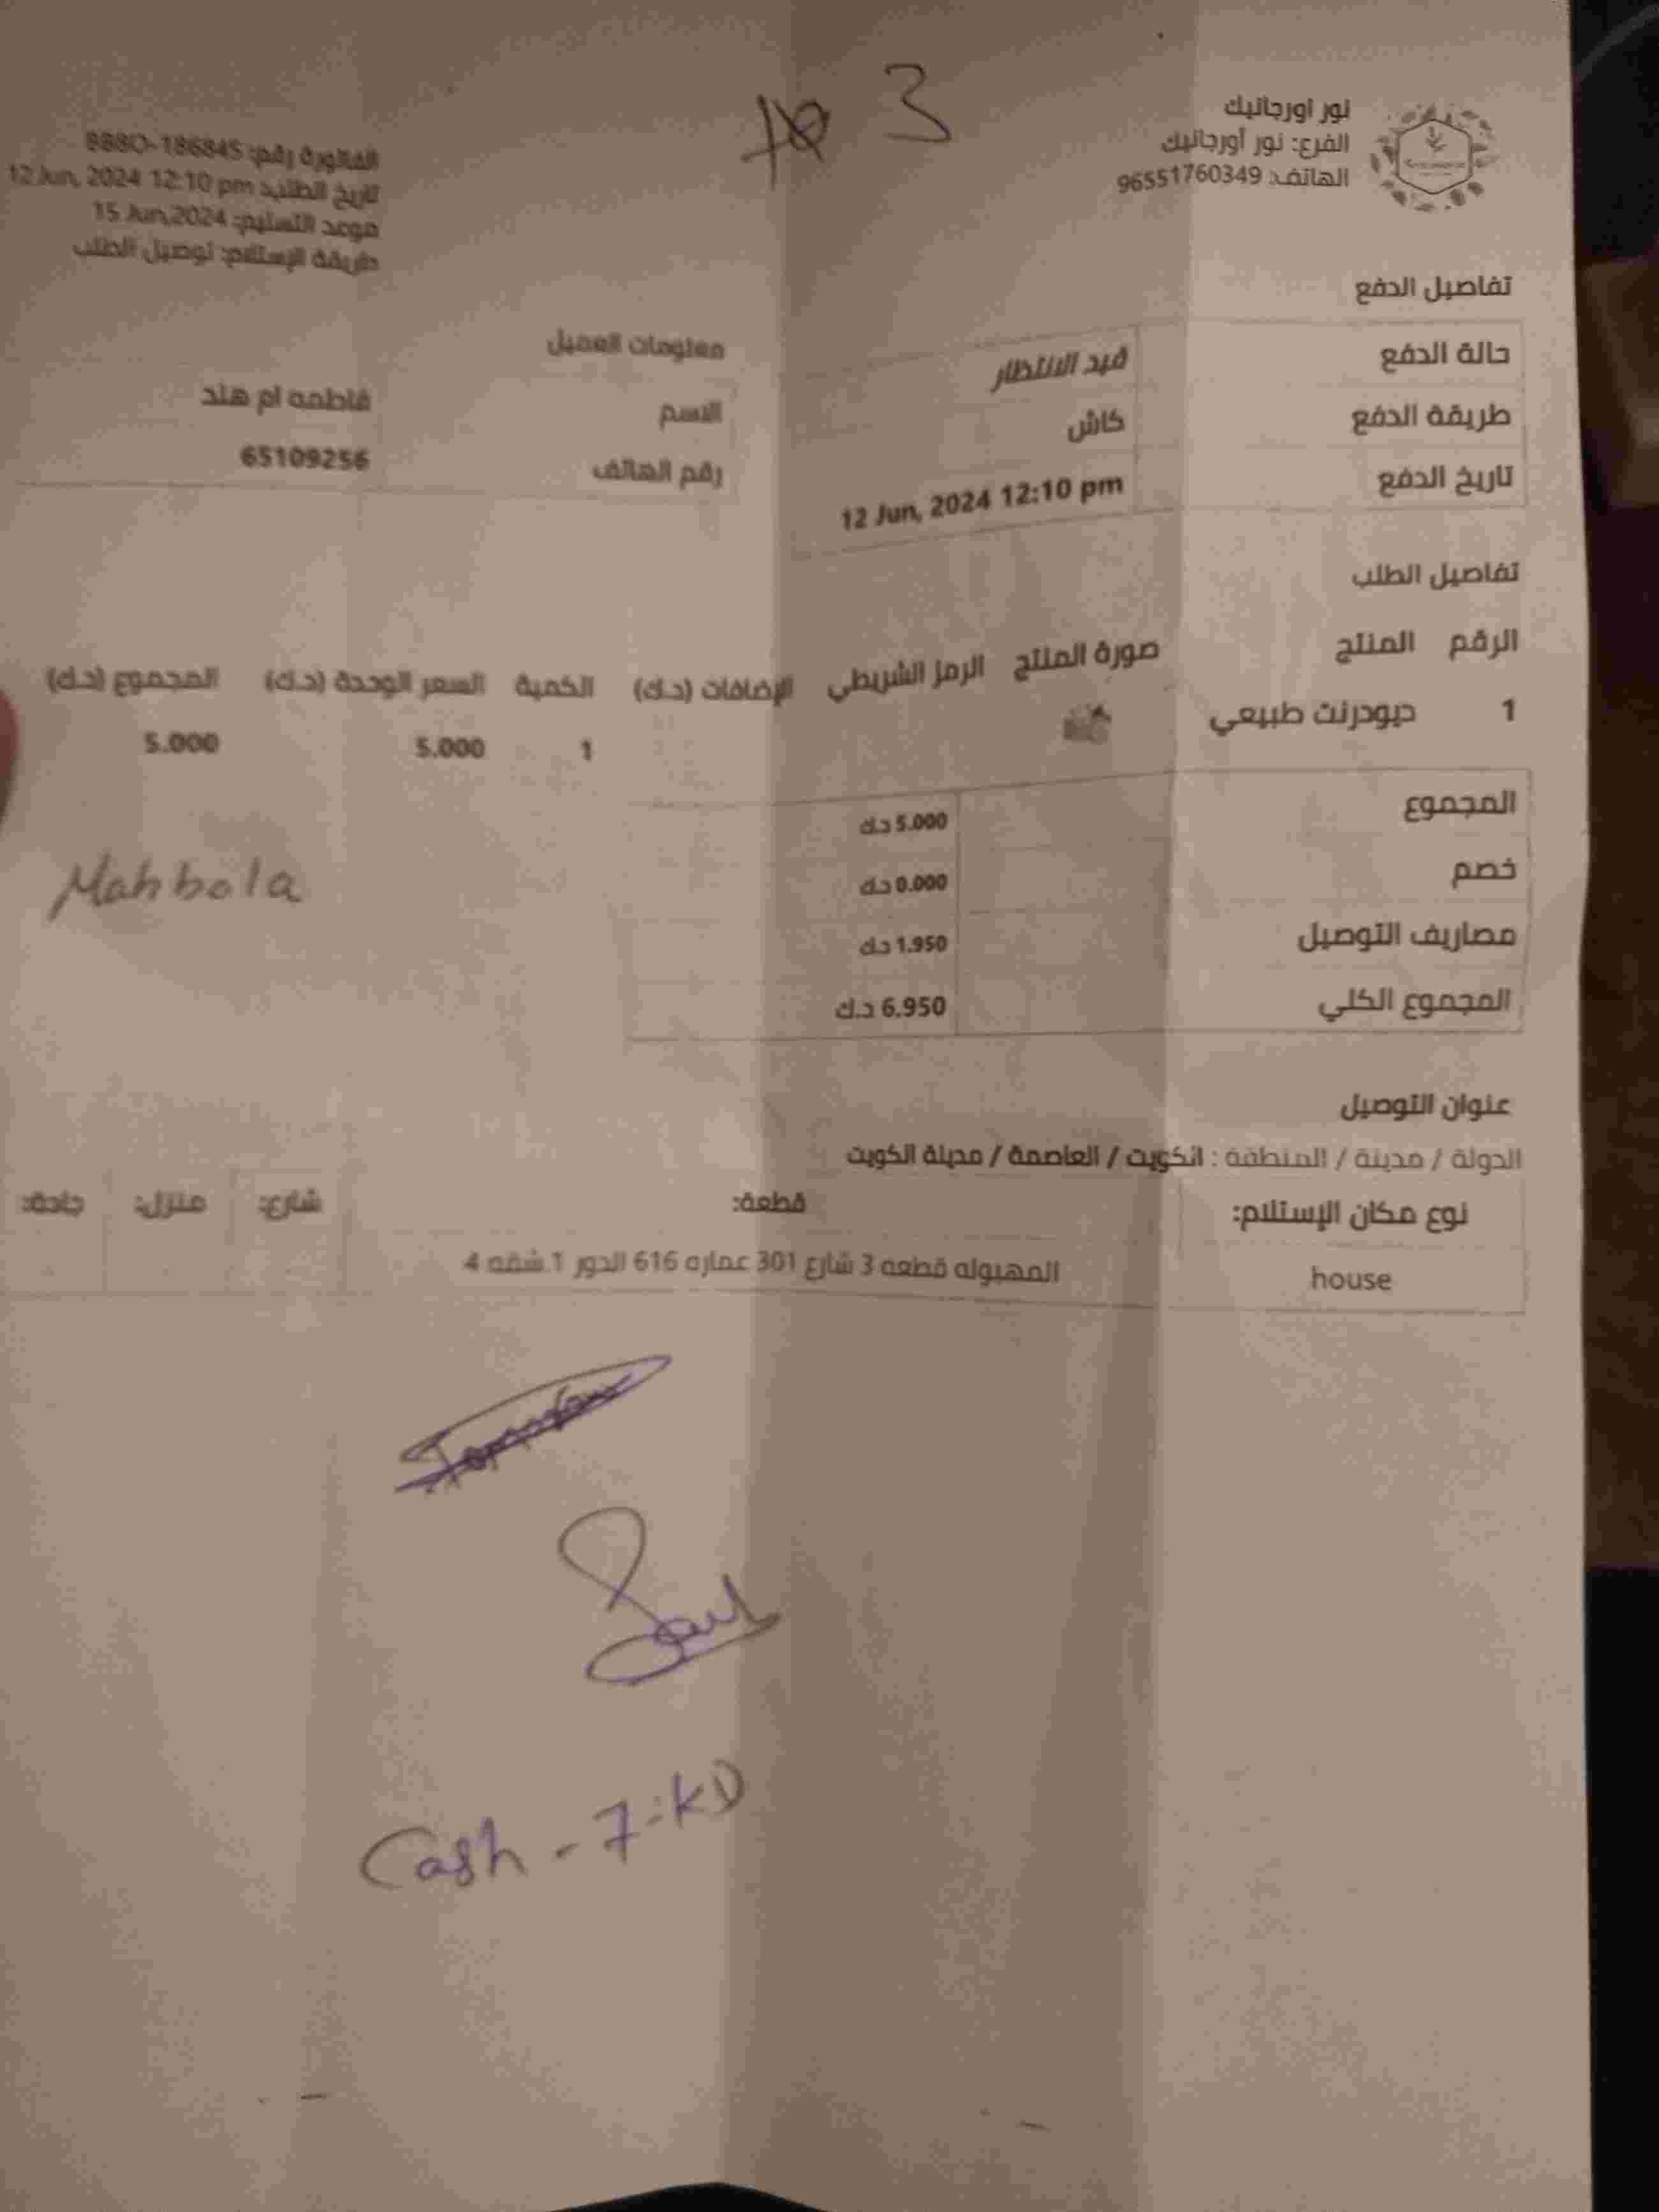 3
نور اورجانيك
الفرع: نور أورجانيك
الهاتف: 96551760349
الفاتورة رقم: 888O-186845
تاريخ الطلب: 12 Jun, 2024 12:10 pm
موعد التسليم: 15 Jun,2024
طريقة الإستلام: توصيل الطلب
تفاصيل الدفع
حالة الدفع قيد الانتظار
طريقة الدفع كاش
تاريخ الدفع 12 Jun, 2024 12:10 pm
معلومات العميل
الاسم فاطمه ام هند
رقم الهاتف 65109256
تفاصيل الطلب
الرقم المنتج صورة المنتج الرمز الشريطي الإضافات (د.ك) الكمية السعر الوحدة (د.ك) المجموع (د.ك)
1 ديودرنت طبيعي 1 5.000 5.000
المجموع 5.000 د.ك
خصم 0.000 د.ك
مصاريف التوصيل 1.950 د.ك
المجموع الكلي 6.950 د.ك
Mahbola
عنوان التوصيل
الدولة / مدينة / المنطقة : الكويت / العاصمة / مدينة الكويت
نوع مكان الإستلام: قطعة: شارع: منزل: جادة:
house المهبوله قطعه 3 شارع 301 عماره 616 الدور 1 شقه 4
Cash - 7.KD